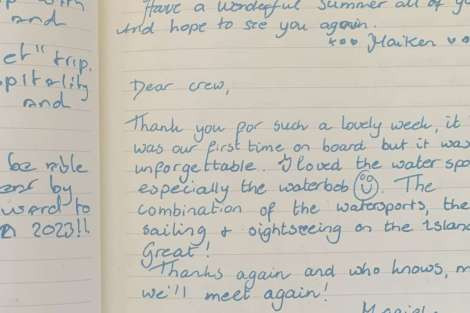 and
et" trip.
pitality
and
be able
by
ward to
2023!!
Have a wonderful summer all of yo
And hope to see you again.
Maiken
Dear crew,
Thank you for such a lovely week, it
was our first time on board but it was
unforgettable. I loved the water spo
especially the waterbob. The
combination of the watersports, the
sailing & sightseeing on the Island
Great!
Thanks again and who knows, m
we'll meet again!